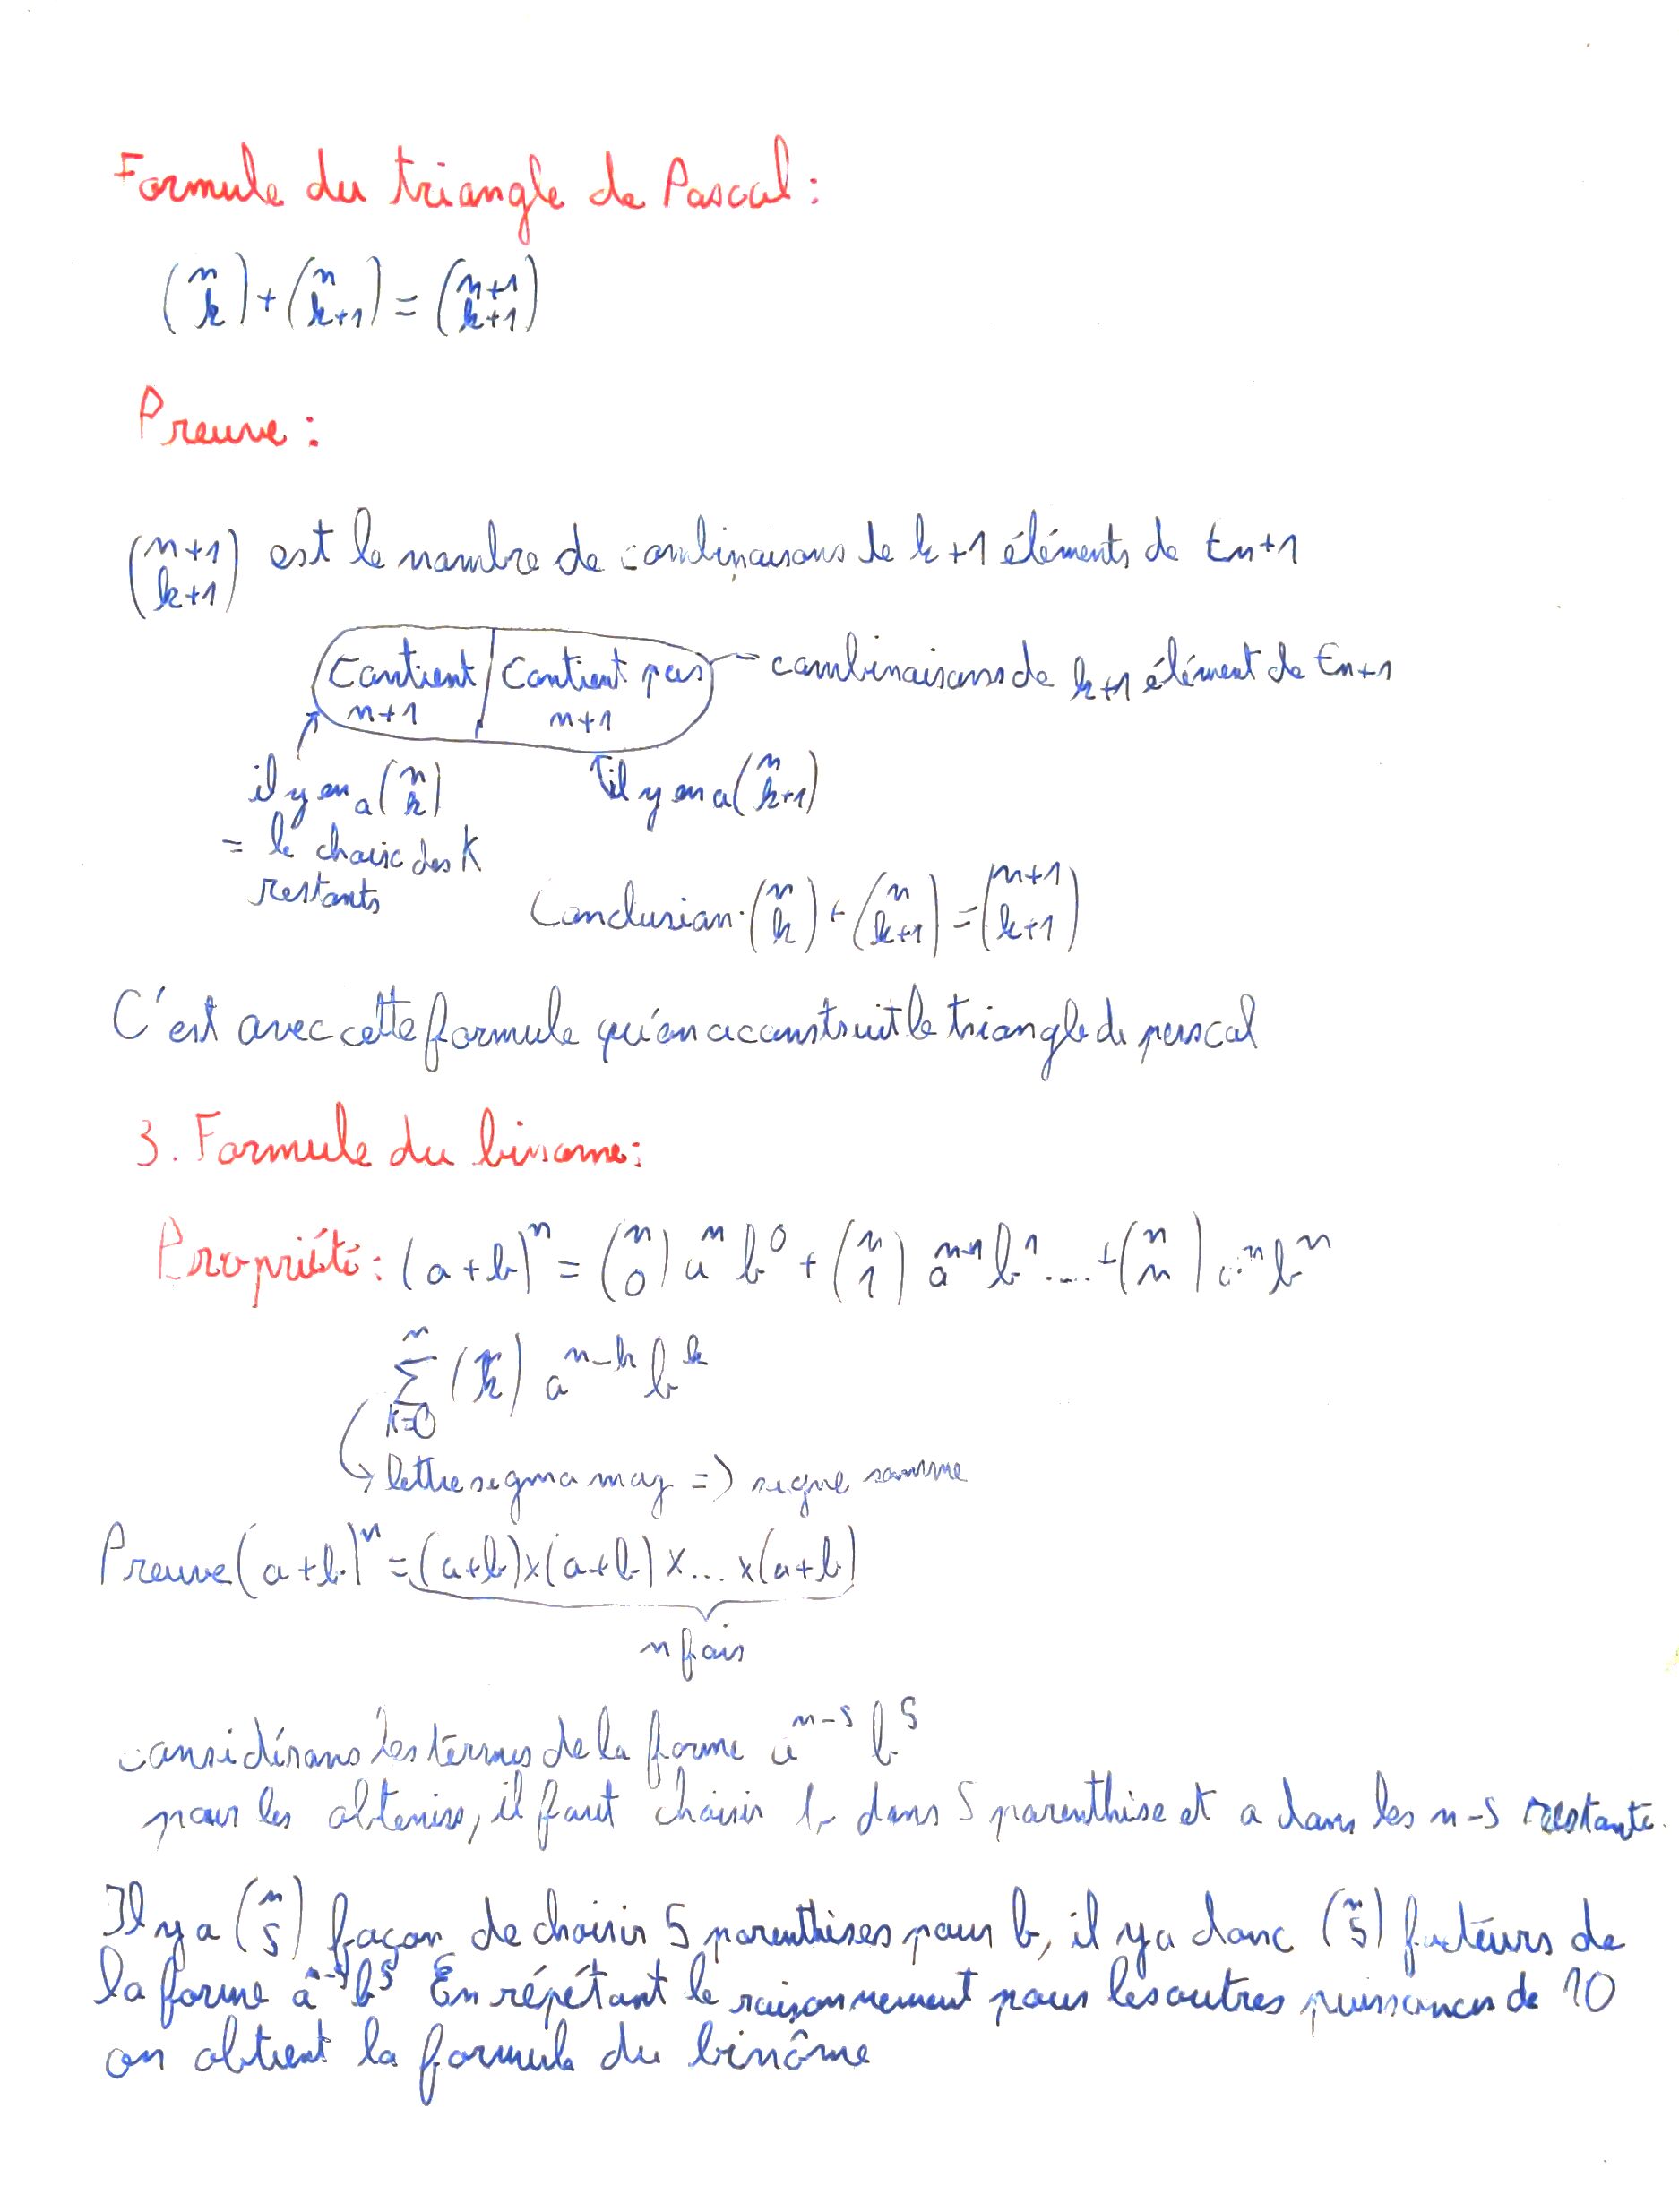 Formule du triangle de Pascal :
(n k) + (n k+1) = (n+1 k+1)
Preuve :
(n+1 k+1) est le nombre de combinaisons de k+1 éléments de En+1
Contient n+1 | Contient pas n+1 — combinaisons de k+1 élément de En+1
il y en a (n k)
il y en a (n k+1)
= le choix des K
restants
Conclusion. (n k) + (n k+1) = (n+1 k+1)
C'est avec cette formule qu'on a construit le triangle de pascal
3. Formule du binome :
Propriété : (a+b)^n = (n 0) a^n b^0 + (n 1) a^n-1 b^1 .... + (n n) a^n b^n
n Σ K=0 (n k) a^n-k b^k
↳ lettre sigma maj => signe somme
Preuve (a+b)^n = (a+b)×(a+b)×...×(a+b)
n fois
considérons les termes de la forme a^n-5 b^5
pour les obtenir, il faut choisir b dans 5 parenthèse et a dans les n-5 restante.
Il y a (n 5) façon de choisir 5 parenthèses pour b, il y a donc (n 5) facteurs de
la forme a^n-5 b^5 En répétant le raisonnement pour les autres puissances de 10
on obtient la formule du binôme